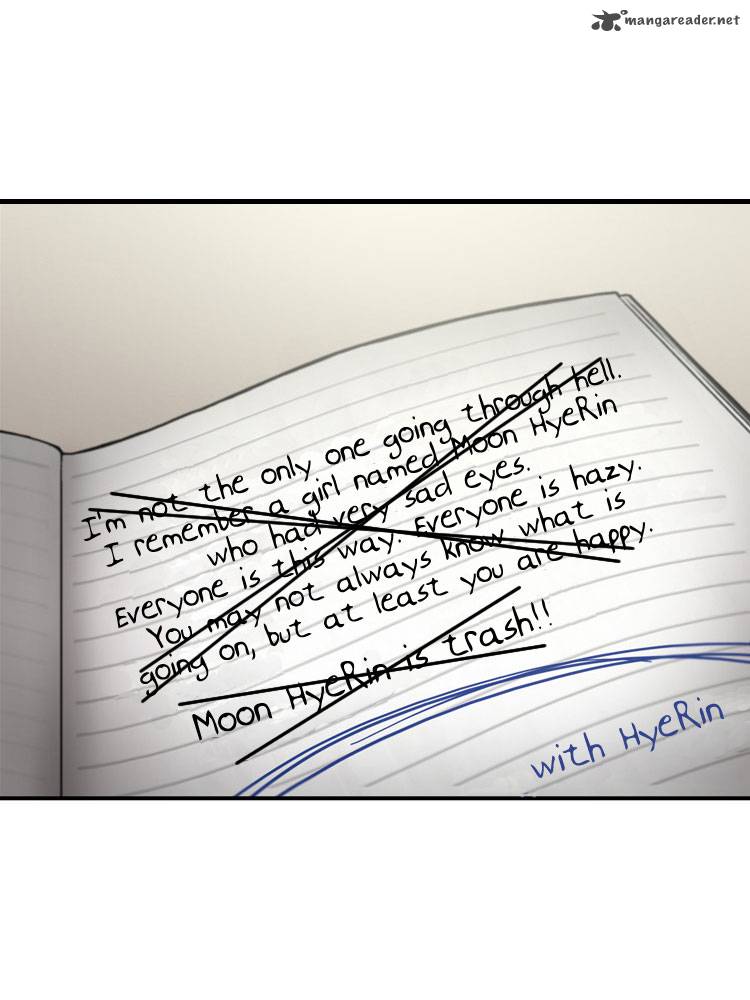 mangareader.net
I'm not the only one going through hell.
I remember a girl named Moon HyeRin
who had very sad eyes.
Everyone is this way. Everyone is hazy.
You may not always know what is
going on, but at least you are happy.
Moon HyeRin is trash!!
with HyeRin